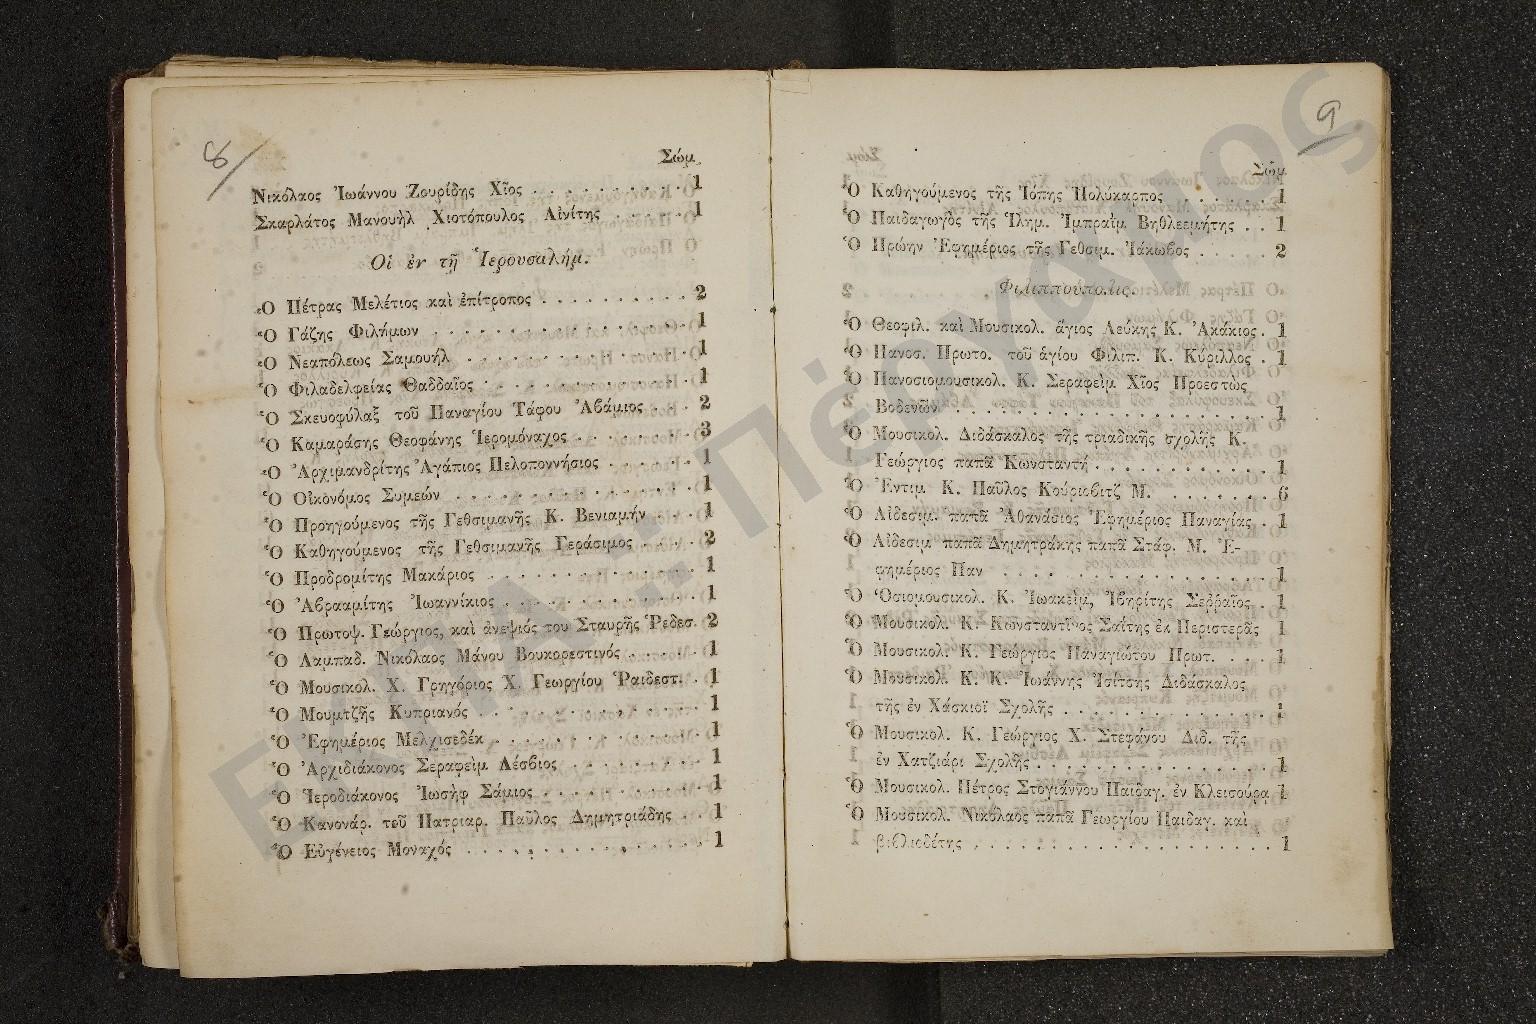 8/
Σώμ.
Νικόλαος Ἰωάννου Ζουρίδης Χῖος . . . . . . . . . . 1
Σκαρλάτος Μανουὴλ Χιοτόπουλος Αἰνίτης . . . . . 1
Οἱ ἐν τῇ Ἱερουσαλήμ.
Ὁ Πέτρας Μελέτιος καὶ ἐπίτροπος . . . . . . . . . . 2
Ὁ Γάζης Φιλήμων . . . . . . . . . . . . . . . . . 1
Ὁ Νεαπόλεως Σαμουήλ . . . . . . . . . . . . . . . 1
Ὁ Φιλαδελφείας Θαδδαῖος . . . . . . . . . . . . . . 1
Ὁ Σκευοφύλαξ τοῦ Παναγίου Τάφου Ἀβάμιος . . . 2
Ὁ Καμαράσης Θεοφάνης Ἱερομόναχος . . . . . . . . 3
Ὁ Ἀρχιμανδρίτης Ἀγάπιος Πελοποννήσιος . . . . . . 1
Ὁ Οἰκονόμος Συμεών . . . . . . . . . . . . . . . . 1
Ὁ Προηγούμενος τῆς Γεθσιμανῆς Κ. Βενιαμήν . . . 1
Ὁ Καθηγούμενος τῆς Γεθσιμανῆς Γεράσιμος . . . . 2
Ὁ Προδρομίτης Μακάριος . . . . . . . . . . . . . . 1
Ὁ Ἀβρααμίτης Ἰωαννίκιος . . . . . . . . . . . . . 1
Ὁ Πρωτοψ. Γεώργιος, καὶ ἀνεψιός του Σταυρῆς Ῥεδεσ. 2
Ὁ Λαμπαδ. Νικόλαος Μάνου Βουκορεστινός . . . . . 1
Ὁ Μουσικολ. Χ. Γρηγόριος Χ. Γεωργίου Ῥαιδεστ. . 1
Ὁ Μουμτζῆς Κυπριανός . . . . . . . . . . . . . . . 1
Ὁ Ἐφημέριος Μελχισεδέκ . . . . . . . . . . . . . . 1
Ὁ Ἀρχιδιάκονος Σεραφεὶμ Λέσβιος . . . . . . . . . 1
Ὁ Ἱεροδιάκονος Ἰωσὴφ Σάμιος . . . . . . . . . . . 1
Ὁ Κανονάρ. τοῦ Πατριαρ. Παῦλος Δημητριάδης . . 1
Ὁ Εὐγένειος Μοναχός . . . . . . . . . . . . . . . . 1
9
Σώμ
Ὁ Καθηγούμενος τῆς Ἰόπης Πολύκαρπος . . . . . . 1
Ὁ Παιδαγωγὸς τῆς Ἱλημ. Ἰμπραῒμ Βηθλεεμήτης . . 1
Ὁ Πρώην Ἐφημέριος τῆς Γεθσιμ. Ἰάκωβος . . . . . 2
Φιλιππούπολις.
Ὁ Θεοφιλ. καὶ Μουσικολ. ἅγιος Λεύκης Κ. Ἀκάκιος . 1
Ὁ Πανοσ. Πρωτο. τοῦ ἁγίου Φιλιπ. Κ. Κύριλλος . 1
Ὁ Πανοσιομουσικολ. Κ. Σεραφεὶμ Χῖος Προεστὼς
Βοδενῶν . . . . . . . . . . . . . . . . . . . . . . 1
Ὁ Μουσικολ. Διδάσκαλος τῆς τριαδικῆς σχολῆς Κ.
Γεώργιος παπᾶ Κωνσταντῆ . . . . . . . . . . . . 1
Ὁ Ἐντιμ Κ. Παῦλος Κούριοβιτζ Μ. . . . . . . . 6
Ὁ Αἰδεσιμ. παπᾶ Ἀθανάσιος Ἐφημέριος Παναγίας . 1
Ὁ Αἰδεσιμ παπᾶ Δημητράκης παπᾶ Στάφ. Μ. Ἐ-
φημέριος Παν . . . . . . . . . . . . . . . . . . . 1
Ὁ Ὁσιομουσικολ. Κ. Ἰωακεὶμ, Ἰβηρίτης Σεῤῥαῖος . 1
Ὁ Μουσικολ. Κ. Κωνσταντῖνος Σαΐτης ἐκ Περιστερᾶς 1
Ὁ Μουσικολ. Κ. Γεώργιος Παναγιώτου Πρωτ. . . . 1
Ὁ Μουσικολ. Κ. Κ. Ἰωάννης Ἰσίτσης Διδάσκαλος
τῆς ἐν Χάσκιοϊ Σχολῆς . . . . . . . . . . . . . . 1
Ὁ Μουσικολ. Κ. Γεώργιος Χ. Στεφάνου Διδ. τῆς
ἐν Χατζιάρι Σχολῆς . . . . . . . . . . . . . . . . 1
Ὁ Μουσικολ. Πέτρος Στογιάννου Παιδαγ. ἐν Κλεισούρᾳ 1
Ὁ Μουσικολ. Νικόλαος παπᾶ Γεωργίου Παιδαγ. καὶ
βιβλιοδέτης . . . . . . . . . . . . . . . . . . . . 1